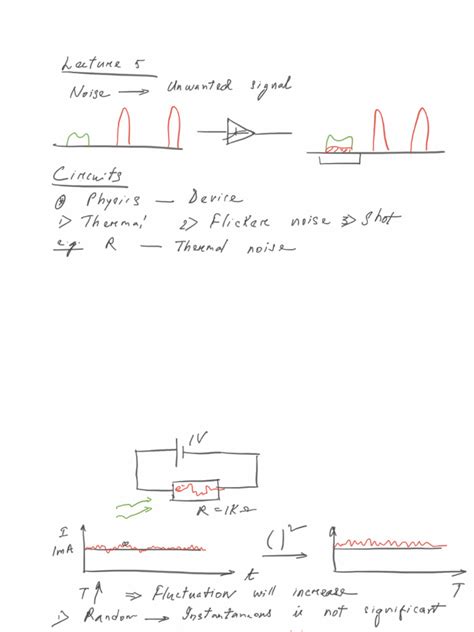 Lecture 5
Noise → Unwanted signal
Circuits
Physics — Device
1> Thermal 2> Flicker noise 3> Shot
e.g. R — Thermal noise
1V
R = 1KΩ
I
1mA
t
( )²
T
T ↑ ⇒ Fluctuation will increase
1> Random → Instantaneous is not significant